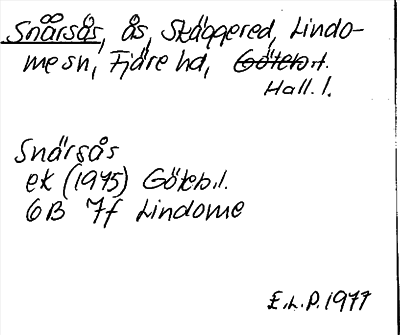 Snärsås, ås, Skäggered, Lindo-
me sn, Fjäre hd, Götebr.l.
Hall. l.
Snärsås
ek (1975) Göteb.l.
6B 7f Lindome
E.L.P. 1977